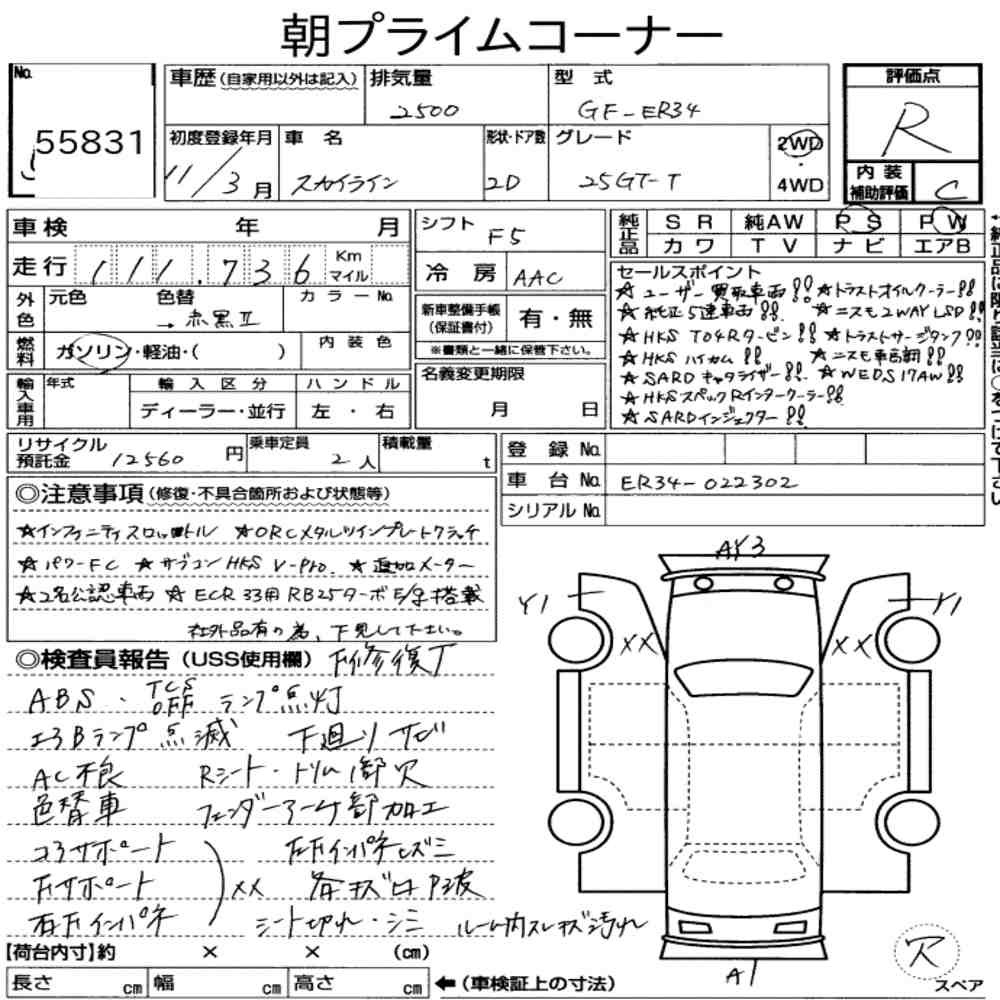 朝プライムコーナー
No.
55831
車歴(自家用以外は記入)
排気量
2500
型 式
GF-ER34
評価点
R
内装
補助評価
C
初度登録年月
11/3月
車 名
スカイライン
形状・ドア数
2D
グレード
25GT-T
2WD
・
4WD
車検 年 月
走行 111,736 Km マイル
外色
元色 色替 → 赤黒II
カラーNo.
燃料
ガソリン・軽油・( )
内装色
輸入車用
年式
輸入区分
ディーラー・並行
ハンドル
左・右
シフト F5
冷房 AAC
新車整備手帳
(保証書付)
有・無
※書類と一緒に保管下さい。
名義変更期限
月 日
純正品
SR 純AW PS PW
カワ TV ナビ エアB
セールスポイント
★ユーザー買取車両!! ★トラストオイルクーラー!!
★純正5速車両!! ★ニスモ2WAY LSD!!
★HKS T04Rタービン!! ★トラストサージタンク!!
★HKS ハイカム!! ★ニスモ車高調!!
★SARDキャタライザー!! ★WEDS17AW!!
★HKSスペックRインタークーラー!!
★SARDインジェクター!!
リサイクル
預託金 12560円
乗車定員 2人
積載量 t
登録No.
車台No. ER34-022302
シリアルNo.
◎注意事項(修復・不具合箇所および状態等)
★インフィニティスロットル ★ORCメタルツインプレートクラッチ
★パワーFC ★サブコンHKS V-Pro. ★追加メーター
★2名公認車両 ★ECR33用RB25ターボE/g搭載
社外品有の為、下見して下さい。
◎検査員報告(USS使用欄)
ABS・TCS OFF ランプ点灯
エアBランプ点滅 下廻りサビ
AC不良 Rシート・トリム1部欠
色替車 フェンダーアーチ部加工
コアサポート
各キズ凹P波
XX
シート切れ・シミ
ルーム内スレキズ汚れ
AY3
Y1
Y1
XX
XX
A1
【荷台内寸】約 × × (cm)
長さ cm 幅 cm 高さ cm
←(車検証上の寸法)
欠
スペア